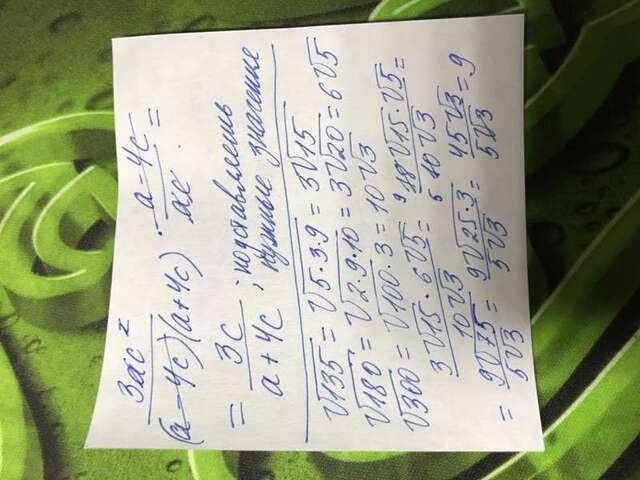 3ac² / (a-4c)(a+4c) · a-4c / ac =
= 3c / a+4c ; подставляешь
нужные значение
√135 = √5·3·9 = 3√15
√180 = √2·9·10 = 3√20 = 6√5
√300 = √100·3 = 10√3
3√15 · 6√5 / 10√3 = 9 18√15·√5 / 5 10√3 =
= 9√75 / 5√3 = 9√25·3 / 5√3 = 45√3 / 5√3 = 9